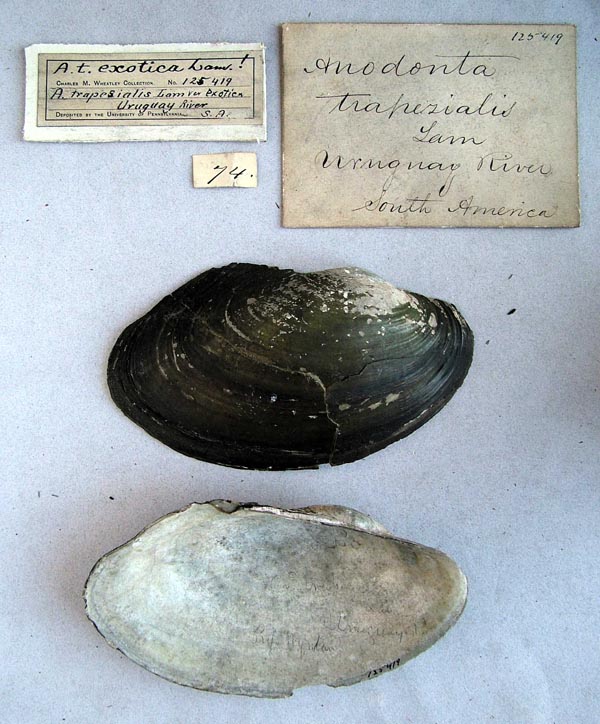 A. t. exotica Lam. !
CHARLES M. WHEATLEY COLLECTION. No. 125419
A. trapesialis Lam var exotica
Uruguay River
DEPOSITED BY THE UNIVERSITY OF PENNSYLVANIA S. A.
74.
125419
Anodonta
trapezialis
Lam
Uruguay River
South America
Uruguay
125419